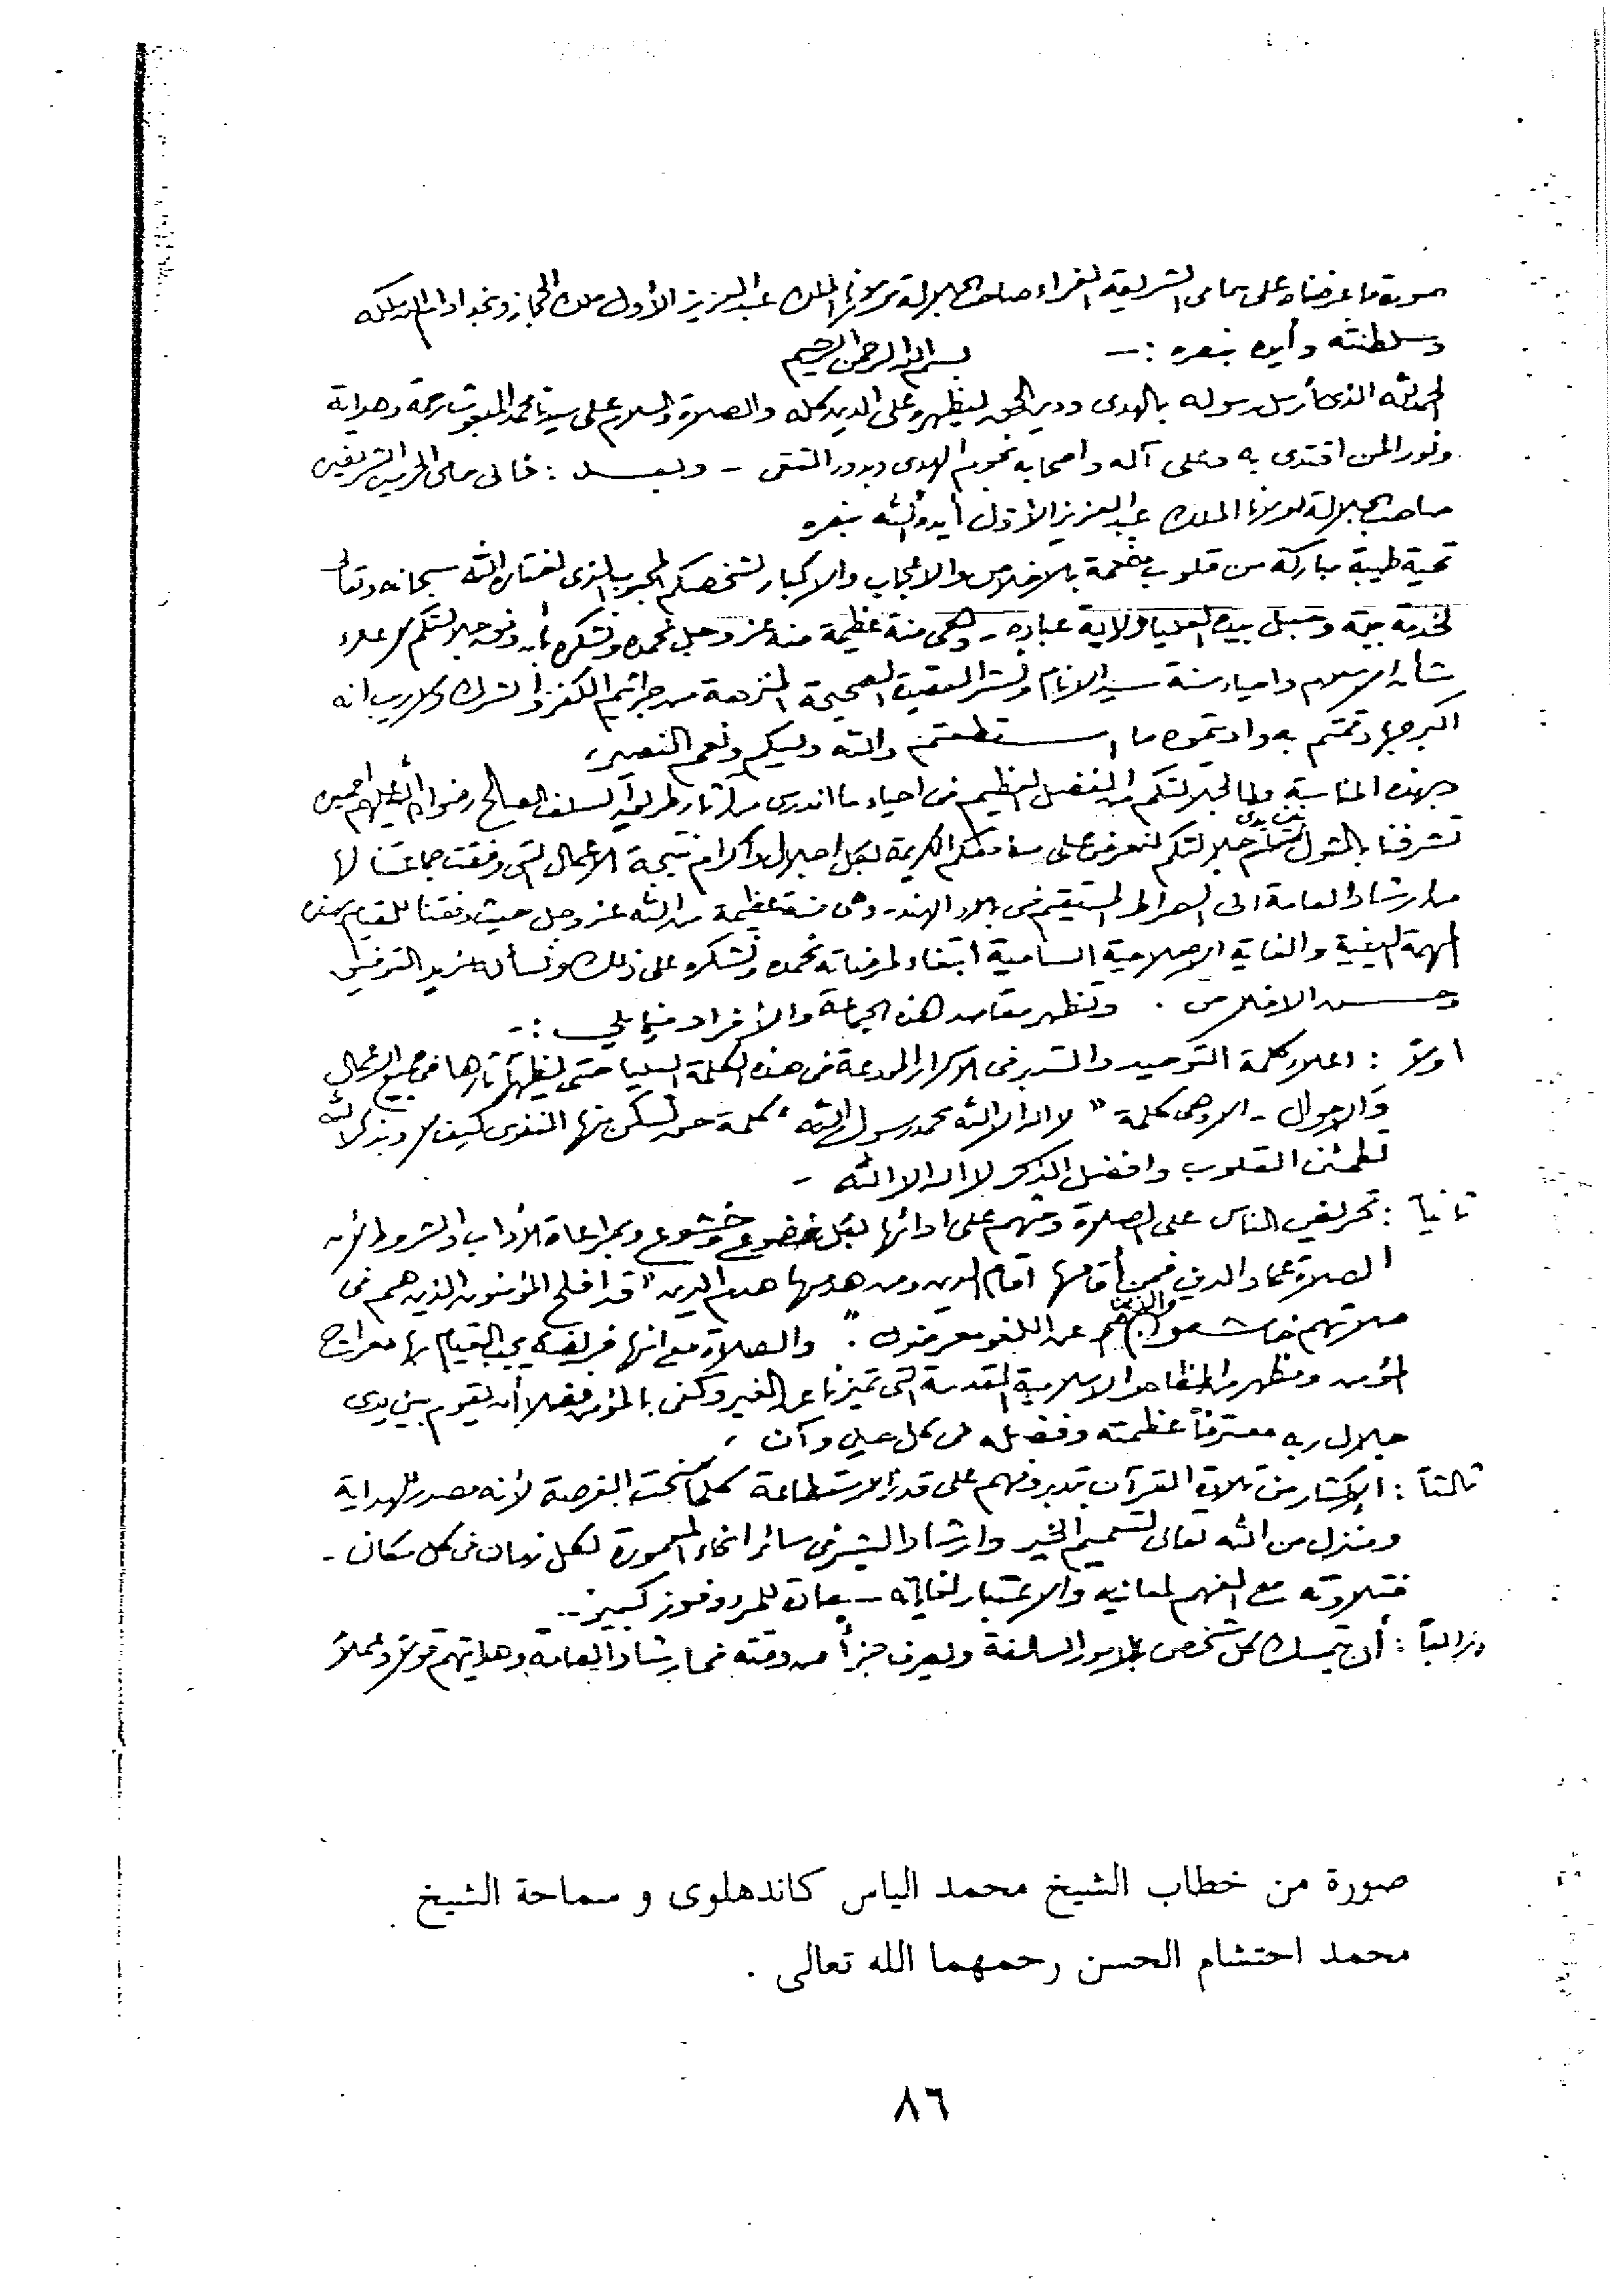 صورة ما عرضناه على حامى الشريعة الغراء صاحب الجلالة مولانا الملك عبد العزيز الأول ملك الحجاز ونجد ادام الله ملكه
وسلطنته وأيده بنصره :—
بسم الله الرحمن الرحيم
الحمد لله الذى أرسل رسوله بالهدى ودين الحق ليظهره على الدين كله والصلاة والسلام على سيدنا محمد المبعوث رحمة وهداية
ونورا لمن اقتدى به وعلى آله واصحابه نجوم الهدى وبدور التقى – وبعد : فالى حامى الحرمين الشريفين
صاحب الجلالة مولانا الملك عبد العزيز الأول أيده الله بنصره
تحية طيبة مباركة من قلوب مفعمة بالاخلاص والاعجاب والاكبار لشخصكم المحبوب الذى اختاره الله سبحانه وتعالى
لخدمة بيته وحبل بيده العليا ولاية عباده – وهى منة عظيمة منه عز وجل نحمده ونشكره بأن وفق جلالتكم لاعلاء
شأن الاسلام واحياء سنة سيد الانام ونشر العقيدة الصحيحة المنزهة من جراثيم الكفر والشرك ولاريب انه
اكبر جهاد قمتم به واديتموه ما استطعتم والله وليكم ونعم النصير ،
وبهذه المناسبة ولما لجلالتكم من الفضل العظيم فى احياء ما اندرس من آثار طريق السلف الصالح رضوان الله عليهم اجمعين
تشرفنا بالمثول بين يدى جلالتكم لنعرض على مسامعكم الكريمة بكل اجلال واكرام نتيجة الاعمال التى وفقت جماعتنا لها
من ارشاد العامة الى الصراط المستقيم فى بلاد الهند – وهى منة عظيمة من الله عز وجل حيث وفقنا للقيام بهذه
المهمة الدينية والغاية الاصلاحية السامية ابتغاء لمرضاته نحمده ونشكره على ذلك ونسأله مزيد التوفيق
وحسن الاخلاص . وتظهر مقاصد هذه الجماعة والأفراد فيما يلي :-
اولاً : اعلاء كلمة التوحيد والتدبر فى الاسرار المودعة فى هذه الكلمة العليا حتى يظهر آثارها فى جميع الاعمال
والاحوال – الا وهى كلمة " لا اله الا الله محمد رسول الله " كلمة حق تسكن بها النفوس كيف لا وبذكر الله
تطمئن القلوب وافضل الذكر لا اله الا الله –
ثانياً : تحريض الناس على الصلاة وحثهم على ادائها بكل خضوع وخشوع وبمراعاة الأداب والشروط لأن
الصلاة عماد الدين فمن أقامها اقام الدين ومن هدمها هدم الدين " قد افلح المؤمنون الذين هم فى
صلاتهم خاشعون والذين هم عن اللغو معرضون " . والصلاة مع انها فريضة يجب القيام بها معراج
المؤمن ومظهر من المظاهر الاسلامية المقدسة التى تميزنا عن الغير وكفى بالمؤمن فضلا أن يقوم بين يدى
جلال ربه معترفاً بعظمته وفضله فى كل حين وآن ،
ثالثاً : الاكثار من تلاوة القرآن بتدبر وفهم على قدر الاستطاعة كلما سنحت الفرصة لأنه مصدر للهداية
ومنزل من الله تعالى لتعميم الخير وارشاد البشر فى سائر انحاء المعمورة لكل زمان فى كل مكان –
فتلاوته مع الفهم لمعانيه والاعتبار لغاياته – سعادة للمرء وفوز كبير –
ورابعاً : أن يتمسك كل شخص بالامور السالفة ويصرف جزأ من وقته فى ارشاد العامة وهدايتهم قولاً وعملاً
صورة من خطاب الشيخ محمد الياس كاندهلوى و سماحة الشيخ
محمد احتشام الحسن رحمهما الله تعالى .
٨٦